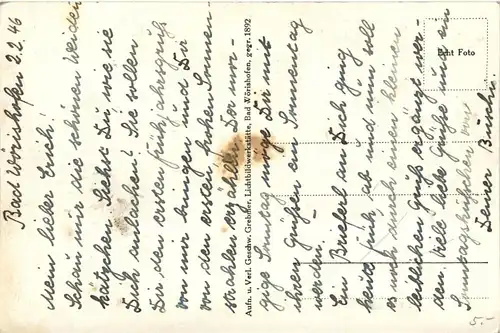 Bad Wörishofen 2.2.46
Mein lieber Erich!
Schau mir die schönen Weiden
kätzchen siehst Du wie sie
Dich anlachen! Sie sollen
Dir den ersten Frühjahrsgruß
von mir bringen und Dir
von den ersten frohen Sonnen-
strahlen erzählen. Der mor-
gige Sonntag möge Dir mit
ihren Grüßen ein Sonnentag
werden.
Ein Brieferl an Dich ging
heute früh ab und nun soll
noch auch einen kleinen
lieblichen Gruß ergänzt wer-
den. Viele liebe Grüße und ein
Sonntagsküßchen von
Deiner
Aufn. u. Verl. Geschw. Grebmer, Lichtbildwerkstätte, Bad Wörishofen, gegr. 1892
Echt Foto
5.-